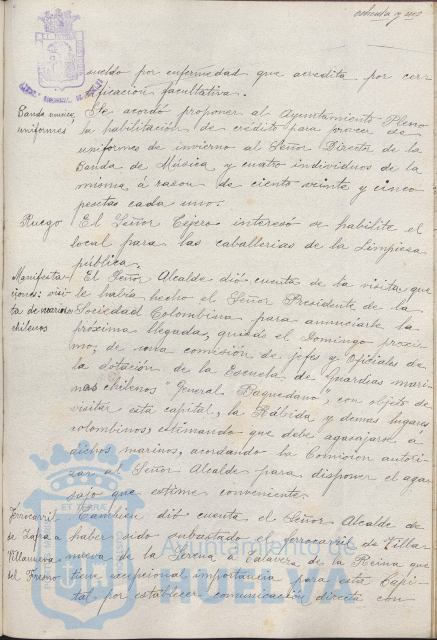 ochenta y uno
sueldo por enfermedad que acredita por cer-
tificación facultativa.
Banda música,
uniformes
Se acordó proponer al Ayuntamiento Pleno
la habilitación de crédito para proveer de
uniformes de invierno al Señor Director de la
Banda de Música y cuatro individuos de la
misma á razón de ciento veinte y cinco
pesetas cada uno.
Ruego
El Señor Tejero interesó se habilite el
local para las caballerías de la Limpieza
pública.
Manifesta-
ciones: visi-
ta de marinos
chilenos
El Señor Alcalde dió cuenta de la visita que
le había hecho el Señor Presidente de la
Sociedad Colombina para anunciarle la
próxima llegada, quizás el Domingo próxi-
mo, de una comisión de jefes y Oficiales de
la dotación de la Escuela de Guardias mari-
nas chilenos "General Baquedano", con objeto de
visitar esta capital, la Rábida y demas lugares
colombinos, estimando que debe agasajarse á
dichos marinos, acordando la Comisión autori-
zar al Señor Alcalde para disponer el aga-
sajo que estime conveniente.
Ferrocarril
de Zafra a
Villanueva
del Fresno
Tambien dió cuenta el Señor Alcalde de
haber sido subastado el ferrocarril de Villa-
nueva de la Serena a Talavera de la Reina que
tiene excepcional importancia para esta Capi-
tal por establecer comunicación directa con
Ayuntamiento de
HUELVA